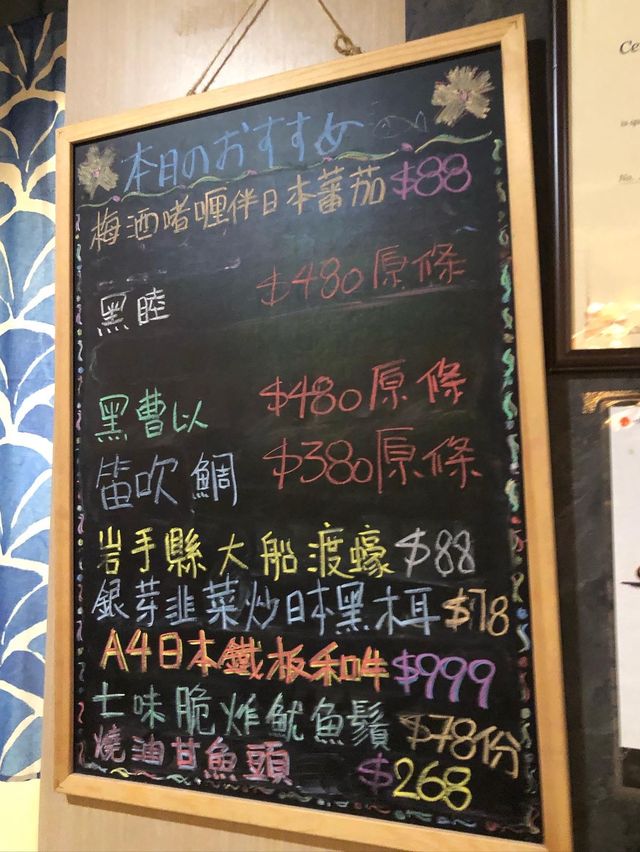 本日のおすすめ
梅酒啫喱伴日本蕃茄 $88
黑睦 $480原條
黑曹以 $480原條
笛吹鯛 $380原條
岩手縣大船渡蠔 $88
銀芽韭菜炒日本黑木耳 $78
A4日本鐵板和牛 $999
七味脆炸魷魚鬚 $78份
燒油甘魚頭 $268
Ce
No.